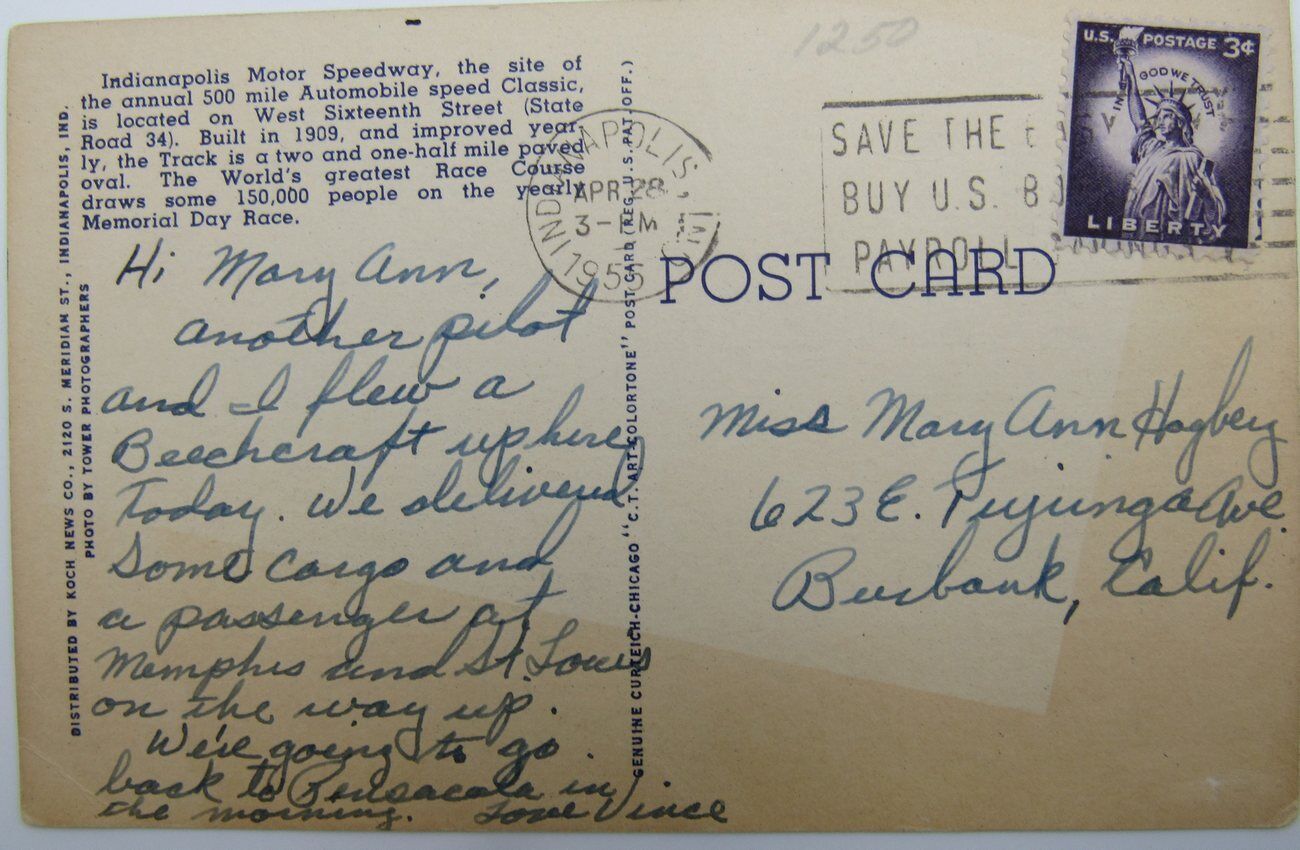 1250
Indianapolis Motor Speedway, the site of
the annual 500 mile Automobile speed Classic,
is located on West Sixteenth Street (State
Road 34). Built in 1909, and improved year-
ly, the Track is a two and one-half mile paved
oval. The World's greatest Race Course
draws some 150,000 people on the yearly
Memorial Day Race.
Hi Mary Ann,
another pilot
and I flew a
Beechcraft up here
today. We delivered
some cargo and
a passenger at
Memphis and St. Louis
on the way up.
We're going to go
back to Pensacola in
the morning. Love Vince
DISTRIBUTED BY KOCH NEWS CO., 2120 S. MERIDIAN ST., INDIANAPOLIS, IND.
PHOTO BY TOWER PHOTOGRAPHERS
GENUINE CURTEICH-CHICAGO "C.T. ART-COLORTONE" POST CARD (REG. U.S. PAT. OFF.)
INDIANAPOLIS, IND.
APR 28
3-PM
1955
SAVE THE
BUY U.S.
PAYROLL
U.S. POSTAGE 3¢
IN GOD WE TRUST
LIBERTY
POST CARD
Miss Mary Ann Hagberg
623 E. Tujunga Ave
Burbank, Calif.